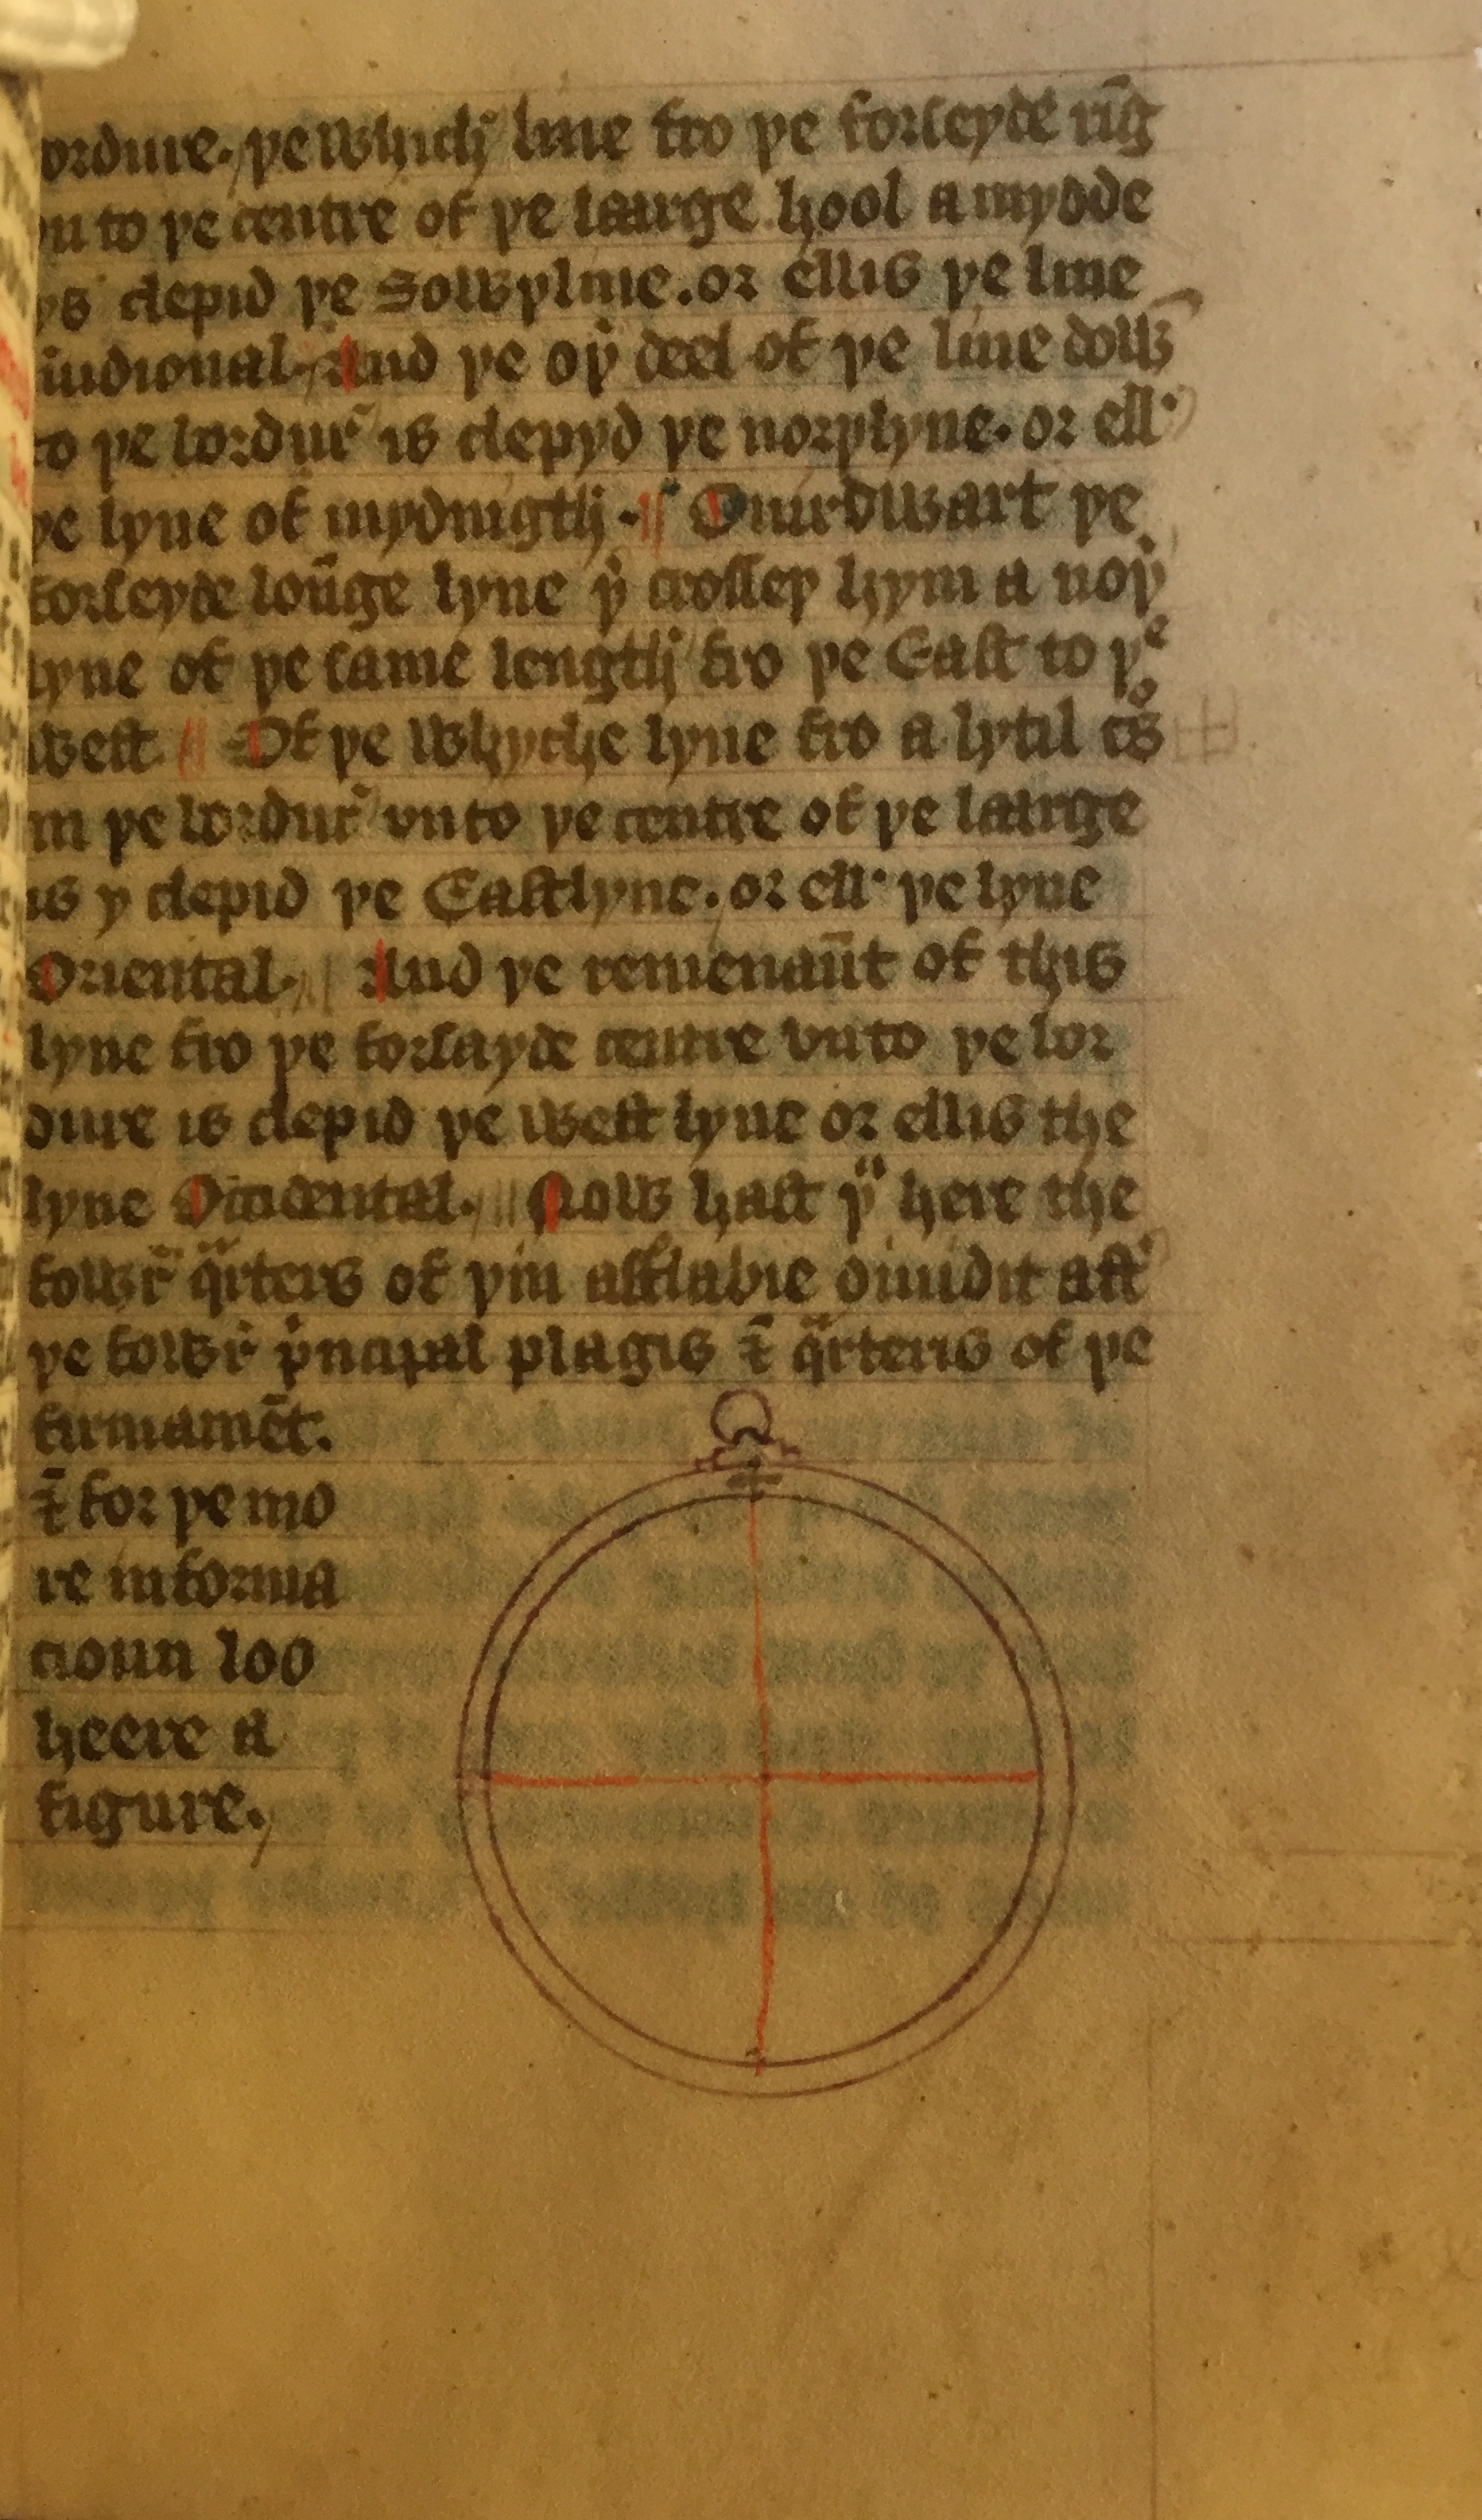 ordure. þe which line fro þe forseyde rīg
vn to þe centre of þe large hool a mydde
ys clepid þe Sowþline. or ellis þe line
idional. And þe oþ̉ deel of þe line dow̄
to þe bordur̉ is clepyd þe norþlyne. or ell̉
þe lyne of mydnigth. Ouirdwart þe
forseyde loūge lyne þ̉ crosseþ hym a noþ̉
lyne of þe same length fro þe East to þᵉ
West Of þe Whyche lyne fro a lytil c͛os
in þe bordur̉ vnto þe centre of þe large
is y clepid þe Eastlyne. or ell̉ þe lyne
Oriental. And þe remenaūt of this
lyne fro þe forsayde centre vnto þe bor
dure is clepid þe west lyne or ellis the
lyne Occidental. Now hast þᵘ here the
fowr̉ qᵃrters of þin astᵃlabie diuidit aft̉
þe fowr̉ pⁱncipal plagis ⁊̄ qᵃrteris of þe
firmamēt.
⁊̄ for þe mo
re informa
cioun loo
heere a
figure.